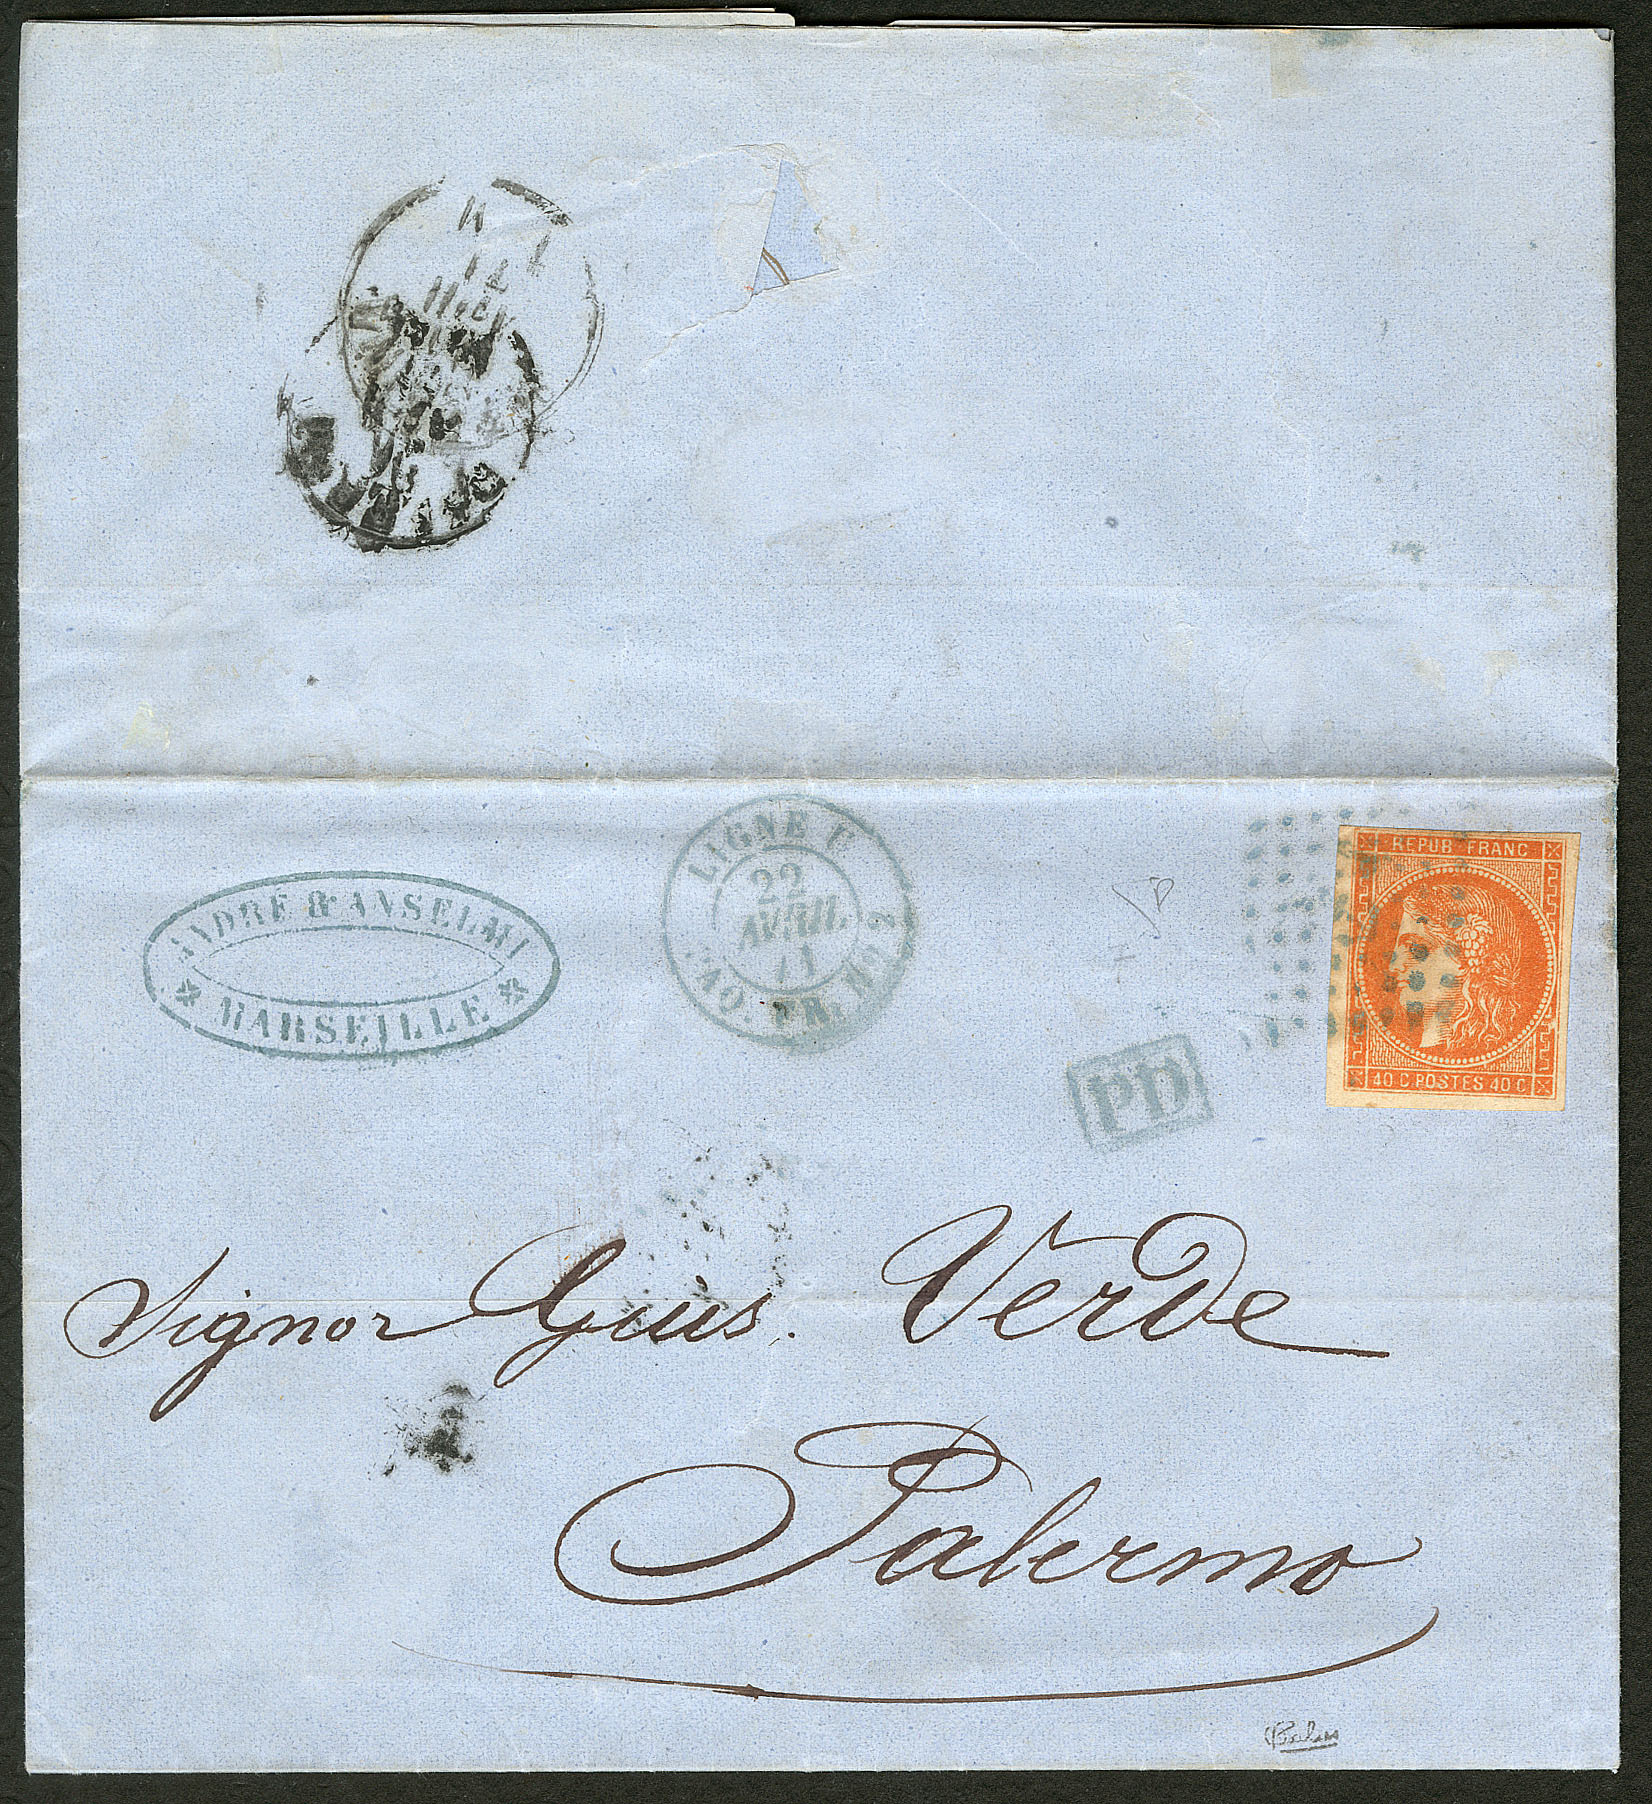 ANDRÉ & ANSELMI
MARSEILLE
LIGNE U
22
AVRIL
71
PAQ. FR. Nº 2
REPUB. FRANC
40 C POSTES 40 C
PD
Signor Gius. Verde
Palermo